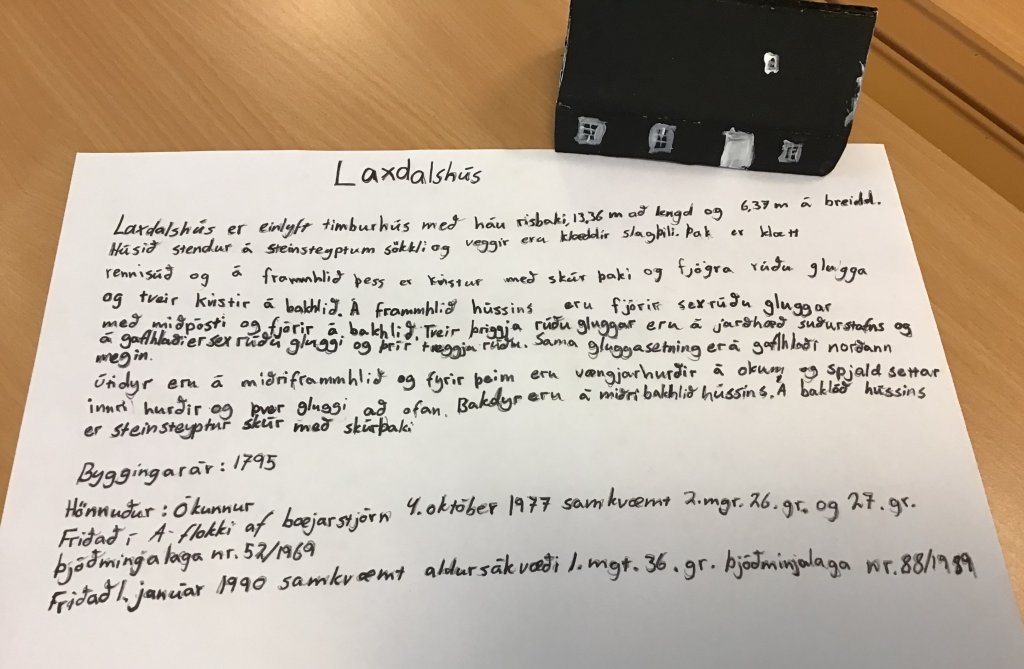 Laxdalshús
Laxdalshús er einlyft timburhús með háu risþaki, 13,36 m að lengd og 6,37 m á breidd.
Húsið stendur á steinsteyptum sökkli og veggir eru klæddir slagþili. Þak er klætt
rennisúð og á frammhlið þess er kvistur með skúr þaki og fjögra rúðu glugga
og tveir kvistir á bakhlið. Á frammhlið hússins eru fjórir sexrúðu gluggar
með miðpósti og fjórir á bakhlið. Tveir þriggja rúðu gluggar eru á jarðhæð suðurstafns og
á gaflhlaði er sex rúðu gluggi og þrír tveggja rúðu. Sama gluggasetning er á gaflhlaði norðann
megin.
Útidyr eru á miðriframmhlið og fyrir þeim eru vængjarhurðir á okum og spjald settar
innri hurðir og þver gluggi að ofan. Bakdyr eru á miðri bakhlið hússins. Á baklóð hússins
er steinsteyptur skúr með skúrþaki
Byggingarár: 1795
Hönnuður: Ókunnur
Friðað í A-flokki af bæjarstjórn 4. október 1977 samkvæmt 2. mgr. 26. gr. og 27. gr.
þjóðmingalaga nr. 52/1969
Friðað 1. janúar 1990 samkvæmt aldursákvæði 1. mgt. 36. gr. þjóðminjalaga nr. 88/1989